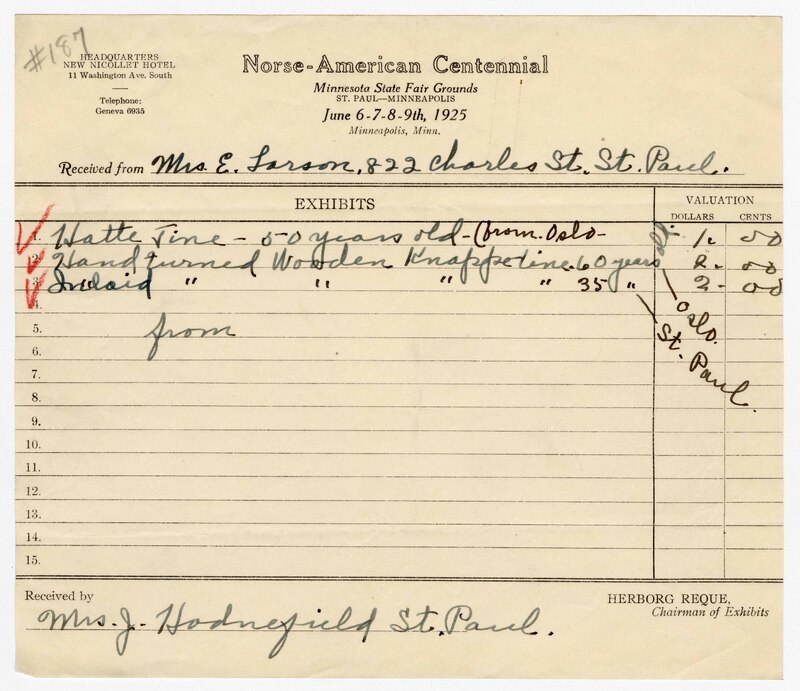 #187
HEADQUARTERS
NEW NICOLLET HOTEL
11 Washington Ave. South
Telephone:
Geneva 6935
Norse-American Centennial
Minnesota State Fair Grounds
ST. PAUL—MINNEAPOLIS
June 6-7-8-9th, 1925
Minneapolis, Minn.
Received from Mrs. E. Larson, 822 Charles St. St. Paul.
EXHIBITS
VALUATION
DOLLARS CENTS
1. Hatte Tine - 50 years old - (from Oslo - 1. 50
2. Hand turned Wooden Knappetine. 60 years old. 2. 00
3. Inlaid " " " " 35 " 2- 00
4.
Oslo.
St. Paul.
5. from
6.
7.
8.
9.
10.
11.
12.
13.
14.
15.
Received by
HERBORG REQUE,
Chairman of Exhibits
Mrs. J. Hodnefield St. Paul.